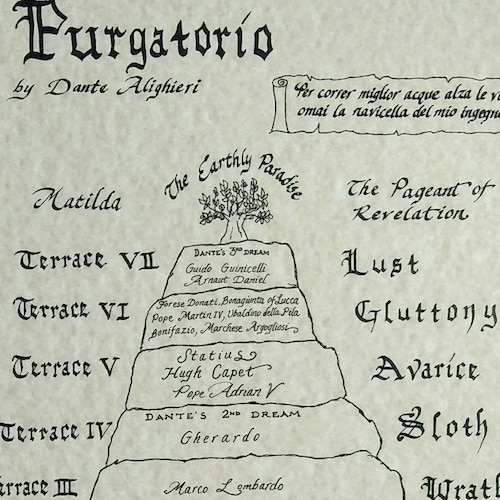 Purgatorio
by Dante Alighieri
Per correr miglior acque alza le
omai la navicella del mio ingegno
The Earthly Paradise
Matilda
The Pageant of
Revelation
Terrace VII
DANTE'S 3RD DREAM
Guido Guinicelli
Arnaut Daniel
Lust
Terrace VI
Forese Donati, Bonagiunta of Lucca
Pope Martin IV, Ubaldino della Pila
Bonifazio, Marchese Argogliosi
Gluttony
Terrace V
Statius
Hugh Capet
Pope Adrian V
Avarice
Terrace IV
DANTE'S 2ND DREAM
Gherardo
Sloth
Terrace III
Marco Lombardo
Wrath